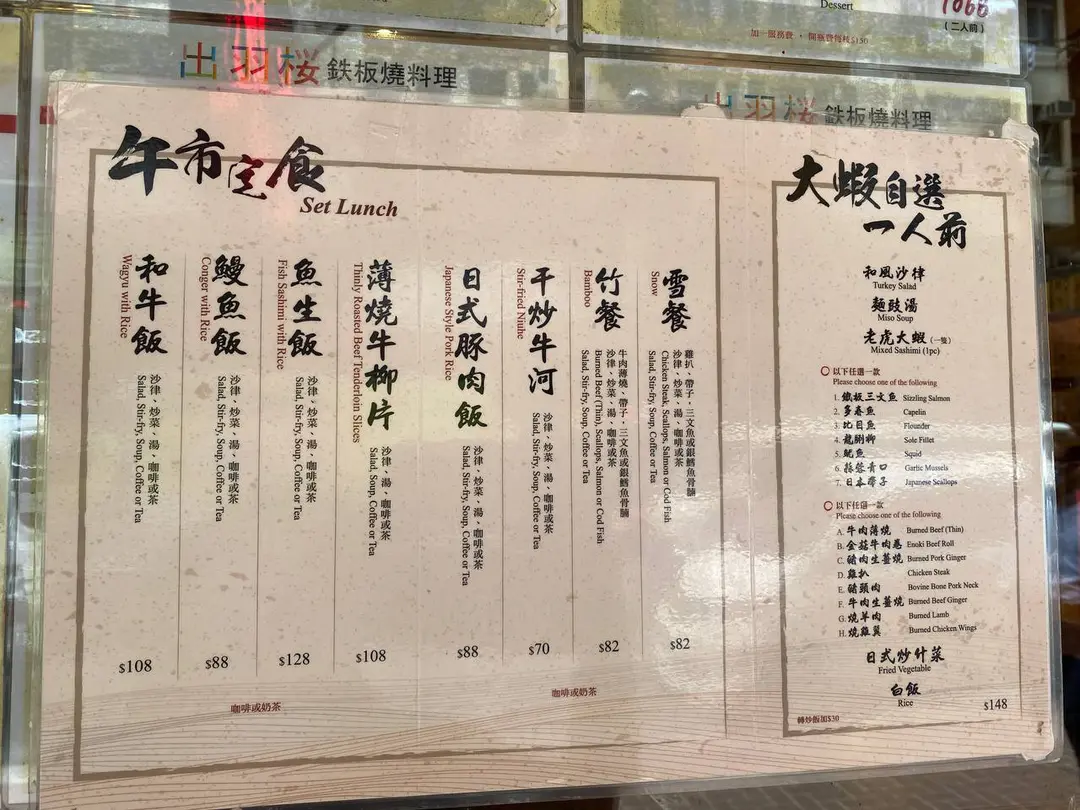 Dessert
1066
(二人前)
加一服務費，開瓶費每枝$150
出羽桜 鉄板燒料理
出羽桜 鉄板燒料理
午市定食
Set Lunch
雪餐
Snow
雞扒、帶子、三文魚或銀鱈魚骨腩
沙律、炒菜、湯、咖啡或茶
Chicken Steak, Scallops, Salmon or Cod Fish
Salad, Stir-fry, Soup, Coffee or Tea
$82
竹餐
Bamboo
牛肉薄燒、帶子、三文魚或銀鱈魚骨腩
沙律、炒菜、湯、咖啡或茶
Burned Beef (Thin), Scallops, Salmon or Cod Fish
Salad, Stir-fry, Soup, Coffee or Tea
$82
干炒牛河
Stir-fried Niuhe
沙律、炒菜、湯、咖啡或茶
Salad, Stir-fry, Soup, Coffee or Tea
$70
日式豚肉飯
Japanese Style Pork Rice
沙律、炒菜、湯、咖啡或茶
Salad, Stir-fry, Soup, Coffee or Tea
$88
薄燒牛柳片
Thinly Roasted Beef Tenderloin Slices
沙律、湯、咖啡或茶
Salad, Soup, Coffee or Tea
$108
魚生飯
Fish Sashimi with Rice
沙律、炒菜、湯、咖啡或茶
Salad, Stir-fry, Soup, Coffee or Tea
$128
鰻魚飯
Conger with Rice
沙律、炒菜、湯、咖啡或茶
Salad, Stir-fry, Soup, Coffee or Tea
$88
和牛飯
Wagyu with Rice
沙律、炒菜、湯、咖啡或茶
Salad, Stir-fry, Soup, Coffee or Tea
$108
咖啡或奶茶
咖啡或奶茶
大蝦自選
一人前
和風沙律
Turkey Salad
麵豉湯
Miso Soup
老虎大蝦(一隻)
Mixed Sashimi (1pc)
以下任選一款
Please choose one of the following
1. 鐵板三文魚 Sizzling Salmon
2. 多春魚 Capelin
3. 比目魚 Flounder
4. 龍脷柳 Sole Fillet
5. 魷魚 Squid
6. 蒜蓉青口 Garlic Mussels
7. 日本帶子 Japanese Scallops
以下任選一款
Please choose one of the following
A. 牛肉薄燒 Burned Beef (Thin)
B. 金菇牛肉卷 Enoki Beef Roll
C. 豬肉生薑燒 Burned Pork Ginger
D. 雞扒 Chicken Steak
E. 豬頸肉 Bovine Bone Pork Neck
F. 牛肉生薑燒 Burned Beef Ginger
G. 燒羊肉 Burned Lamb
H. 燒雞翼 Burned Chicken Wings
日式炒什菜
Fried Vegetable
白飯
Rice
$148
轉炒飯加$30